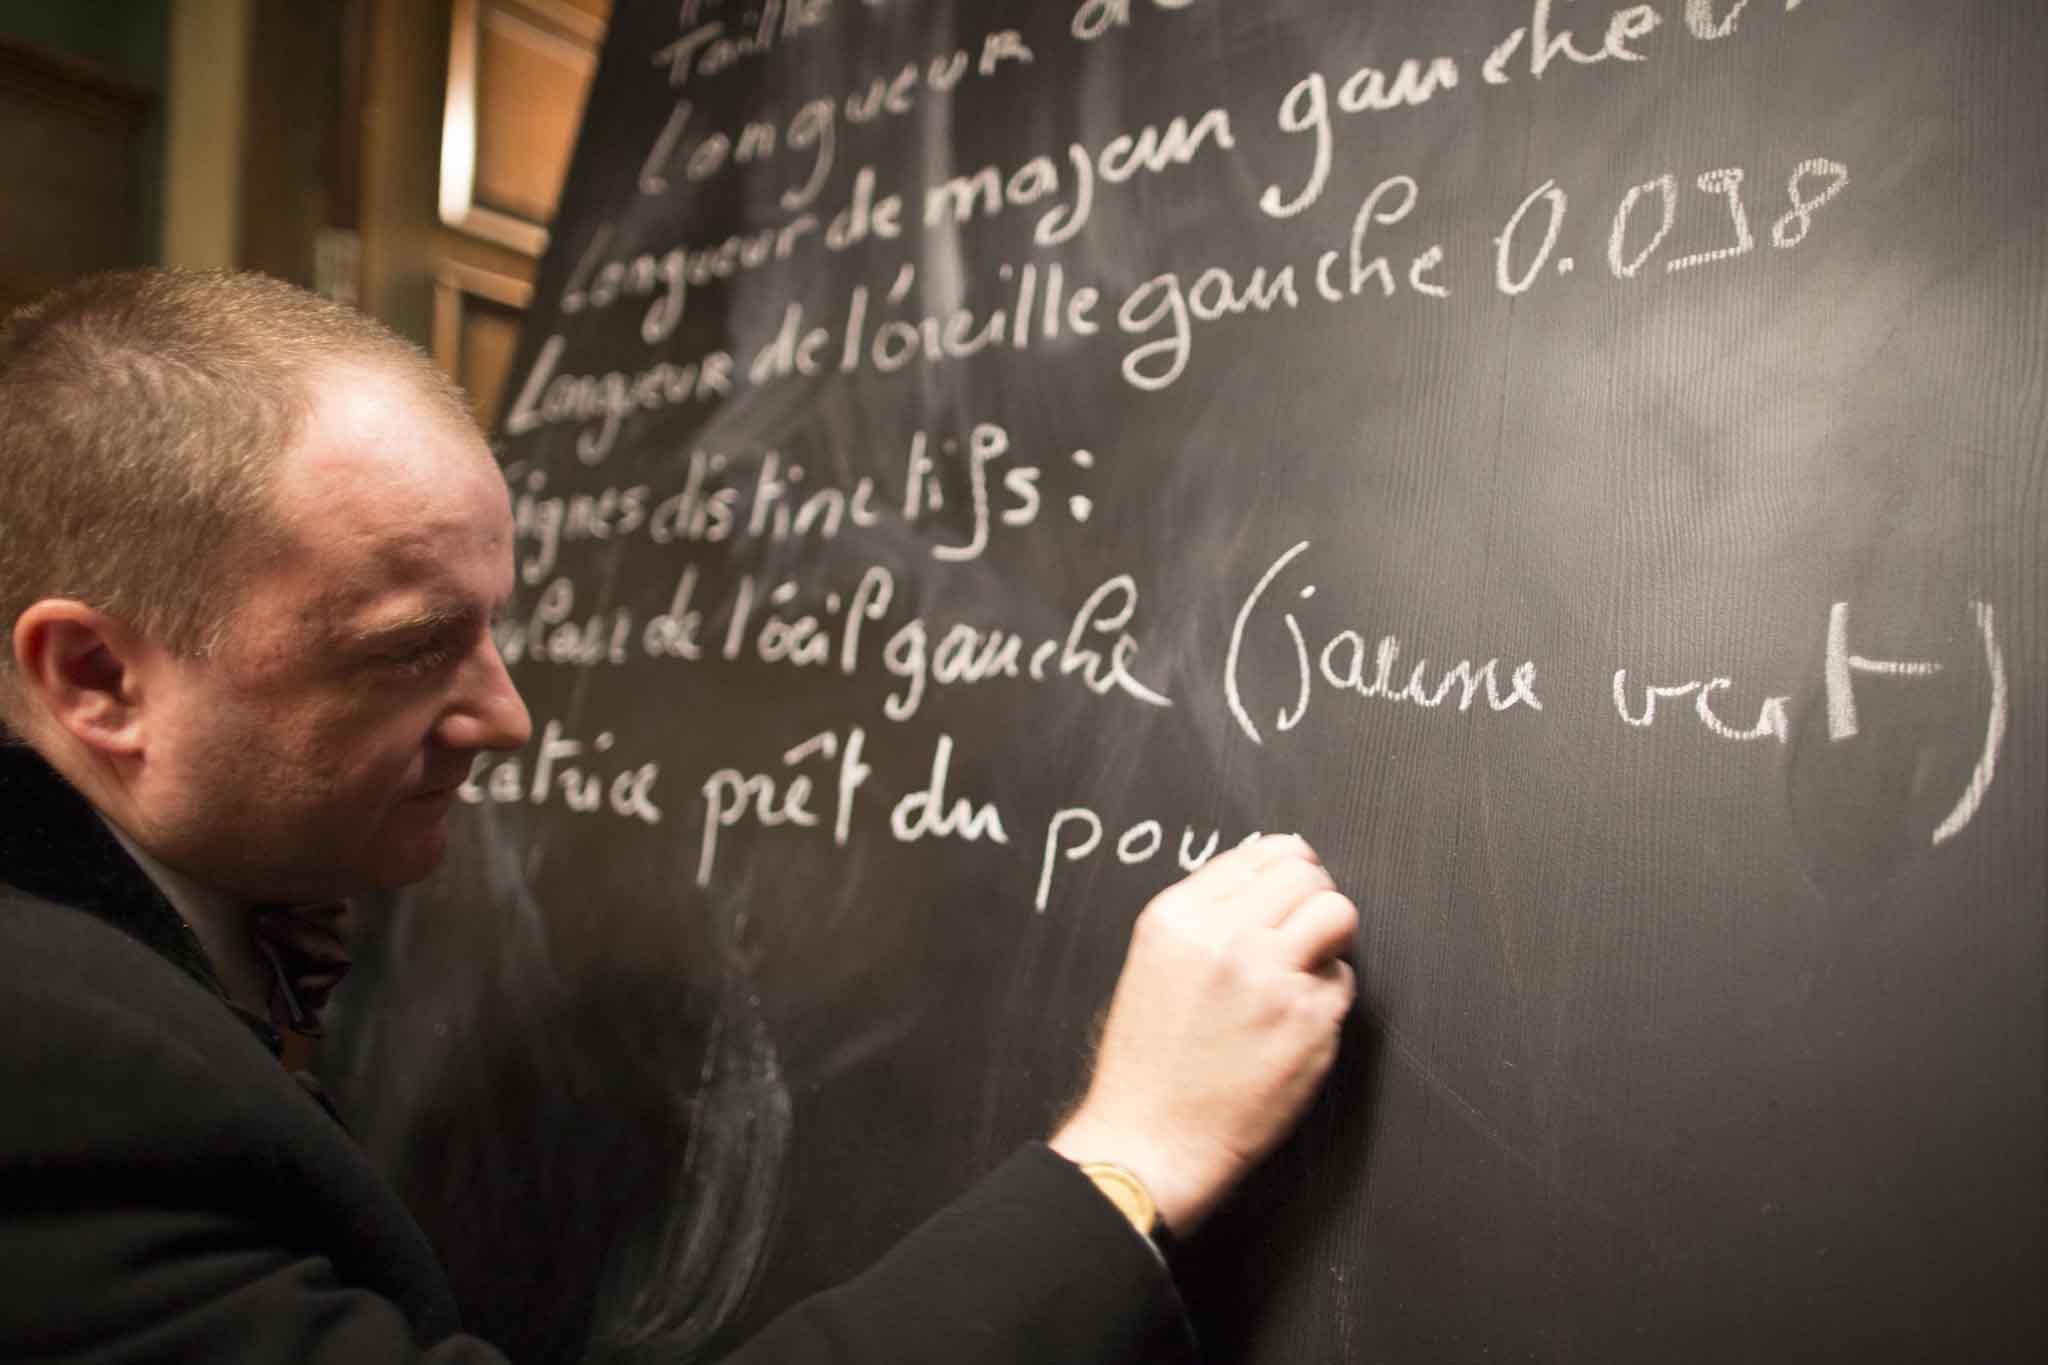 Taille
Longueur de
Longueur de majeur gauche 0.
Longueur de l'oreille gauche 0.098
Signes distinctifs :
de l'oeil gauche (jaune vert)
catrice prêt du pou